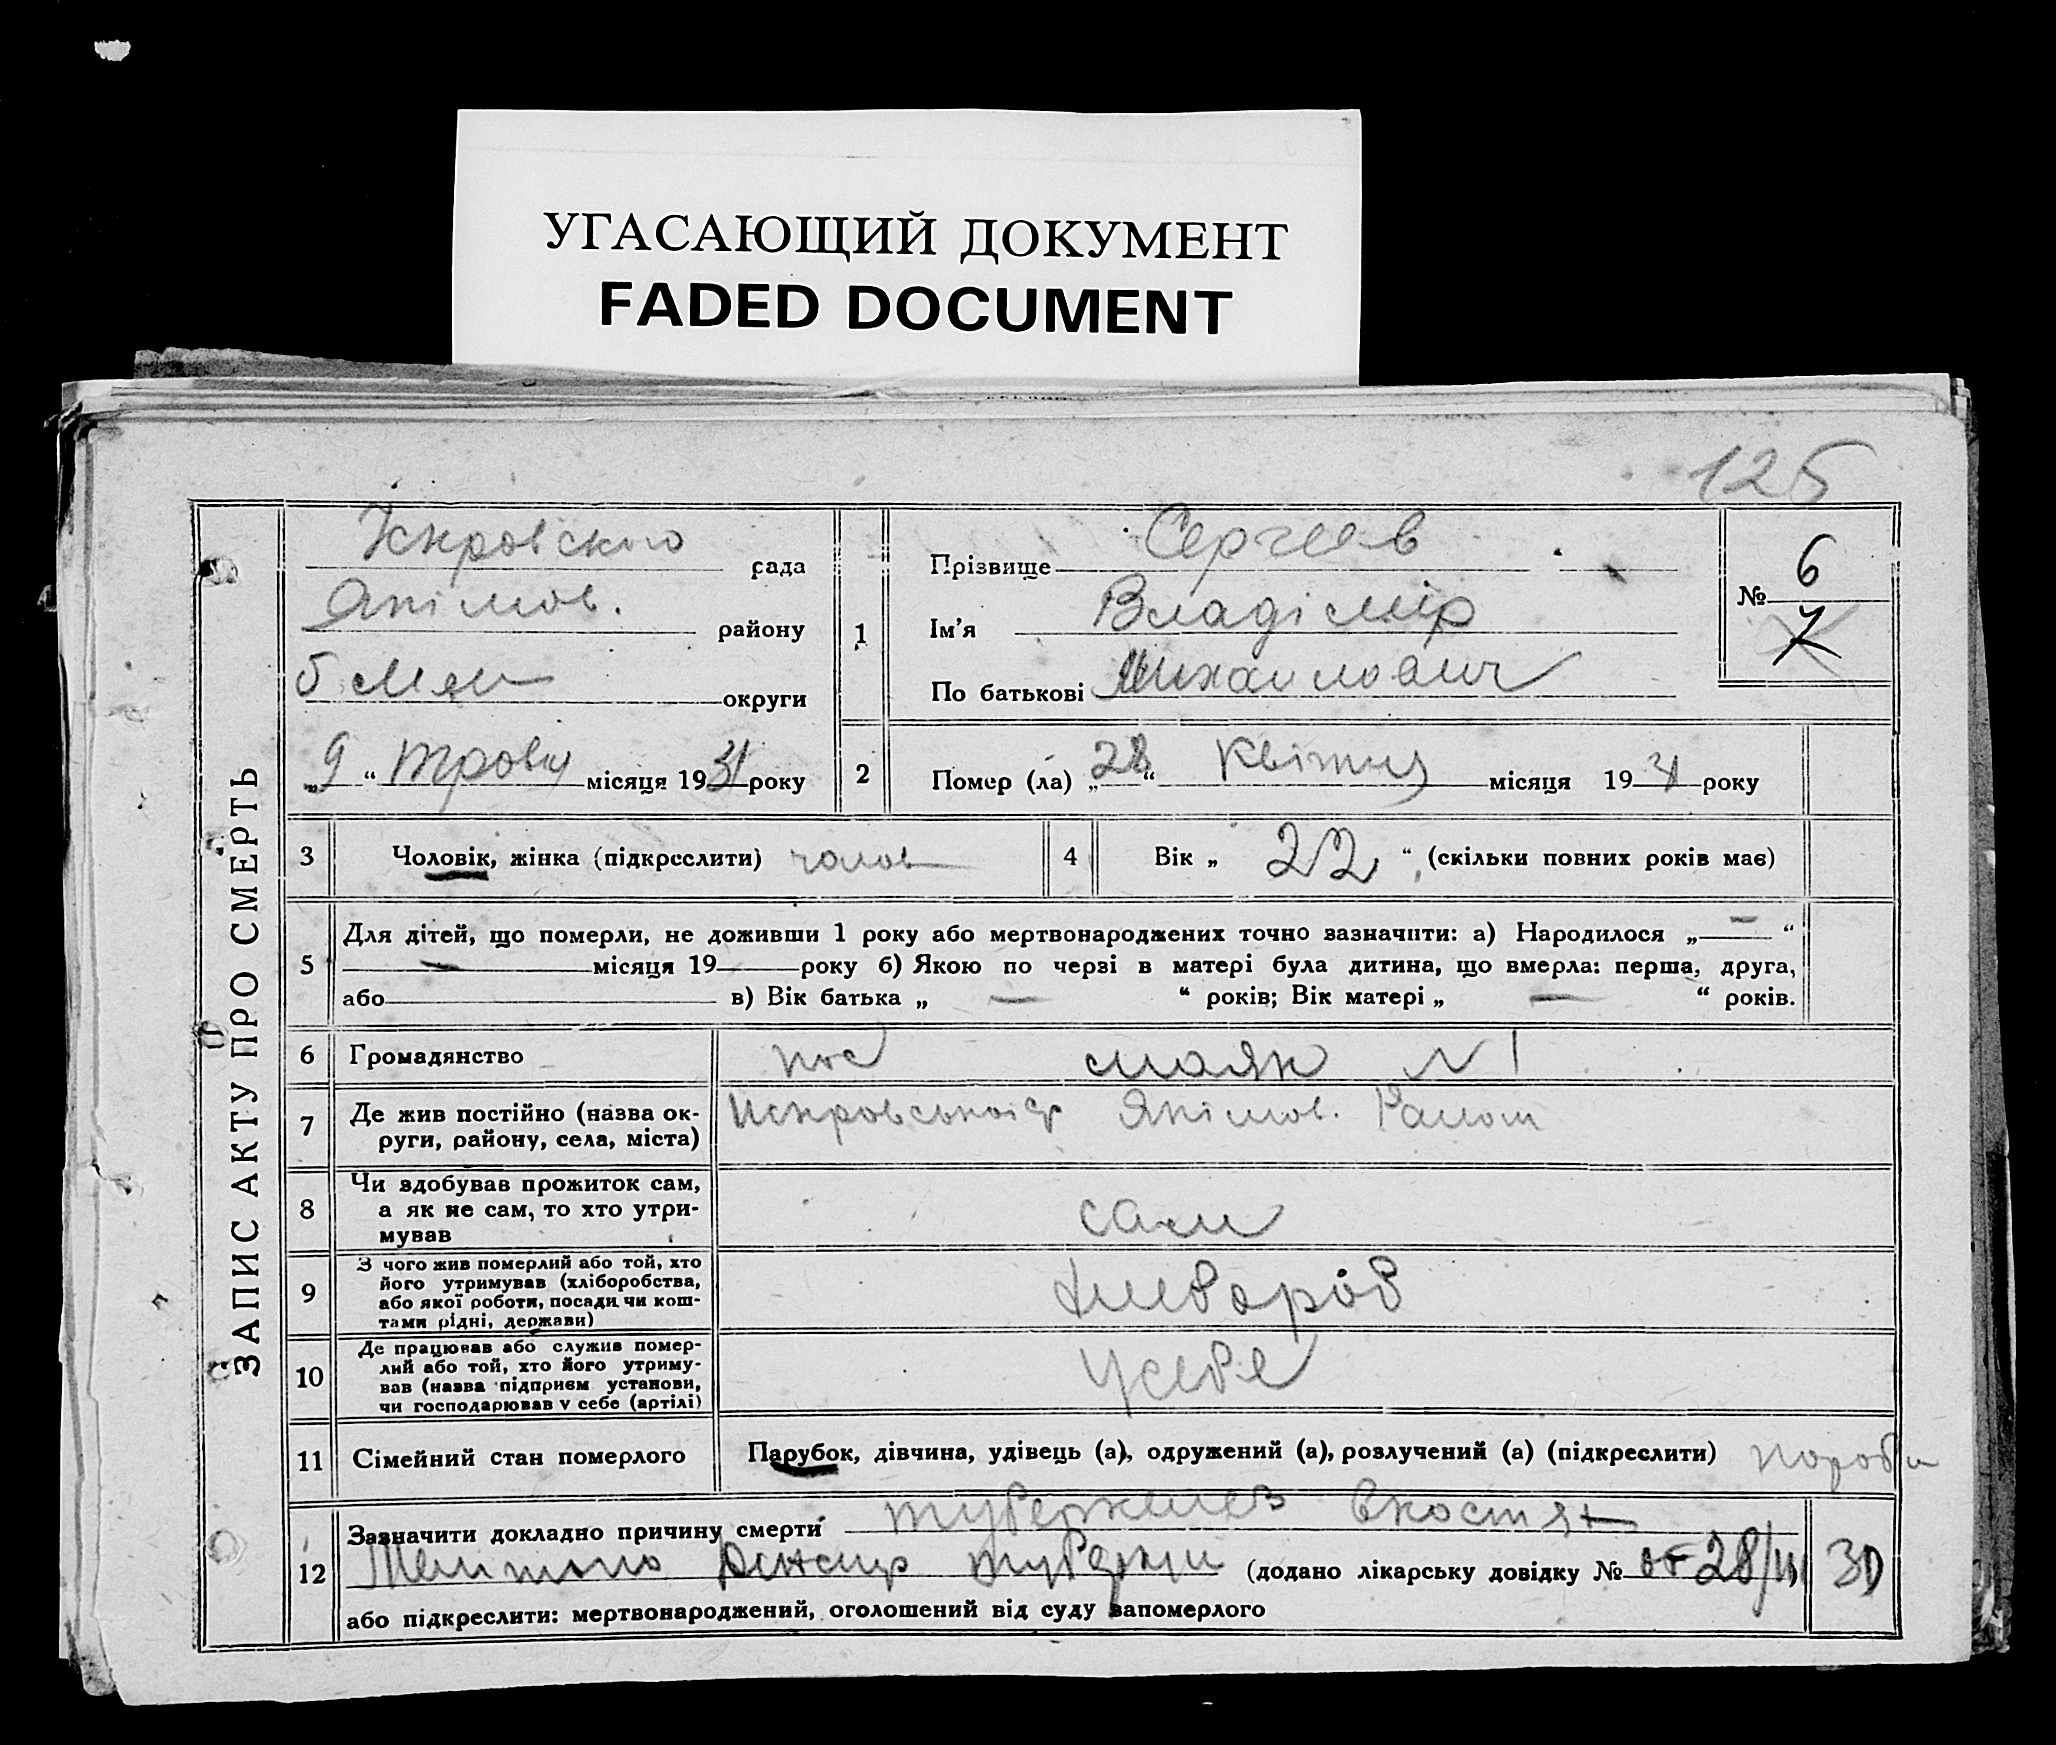 УГАСАЮЩИЙ ДОКУМЕНТ
FADED DOCUMENT
125
ЗАПИС АКТУ ПРО СМЕРТЬ
сада
Якімов. району
округи
„9“ травня місяця 1931 року
1
Прізвище Сергеев
Ім’я Владімір
По батькові Михаилович
№ 6
7
2
Помер (ла) „28“ квітня місяця 1931 року
3
Чоловік, жінка (підкреслити) чолов
4
Вік „22“, (скільки повних років має)
5
Для дітей, що померли, не доживши 1 року або мертвонароджених точно зазначити: а) Народилося „—“
— місяця 19 року б) Якою по черзі в матері була дитина, що вмерла: перша, друга,
або в) Вік батька „ — “ років; Вік матері „ — “ років.
6
Громадянство
маяк № 1
7
Де жив постійно (назва ок-
руги, району, села, міста)
Якімов.
8
Чи здобував прожиток сам,
а як не сам, то хто утри-
мував
сам
9
З чого жив померлий або той, хто
його утримував (хліборобства,
або якої роботи, посади чи кош-
тами рідні, держави)
хлебороб
10
Де працював або служив помер-
лий або той, хто його утриму-
вав (назва підприєм установи,
чи господарював у себе (артілі)
у себе
11
Сімейний стан померлого
Парубок, дівчина, удівець (а), одружений (а), розлучений (а) (підкреслити)
12
Зазначити докладно причину смерти туберкулез в костях
(додано лікарську довідку № от 28/
30
або підкреслити: мертвонароджений, оголошений від суду запомерлого